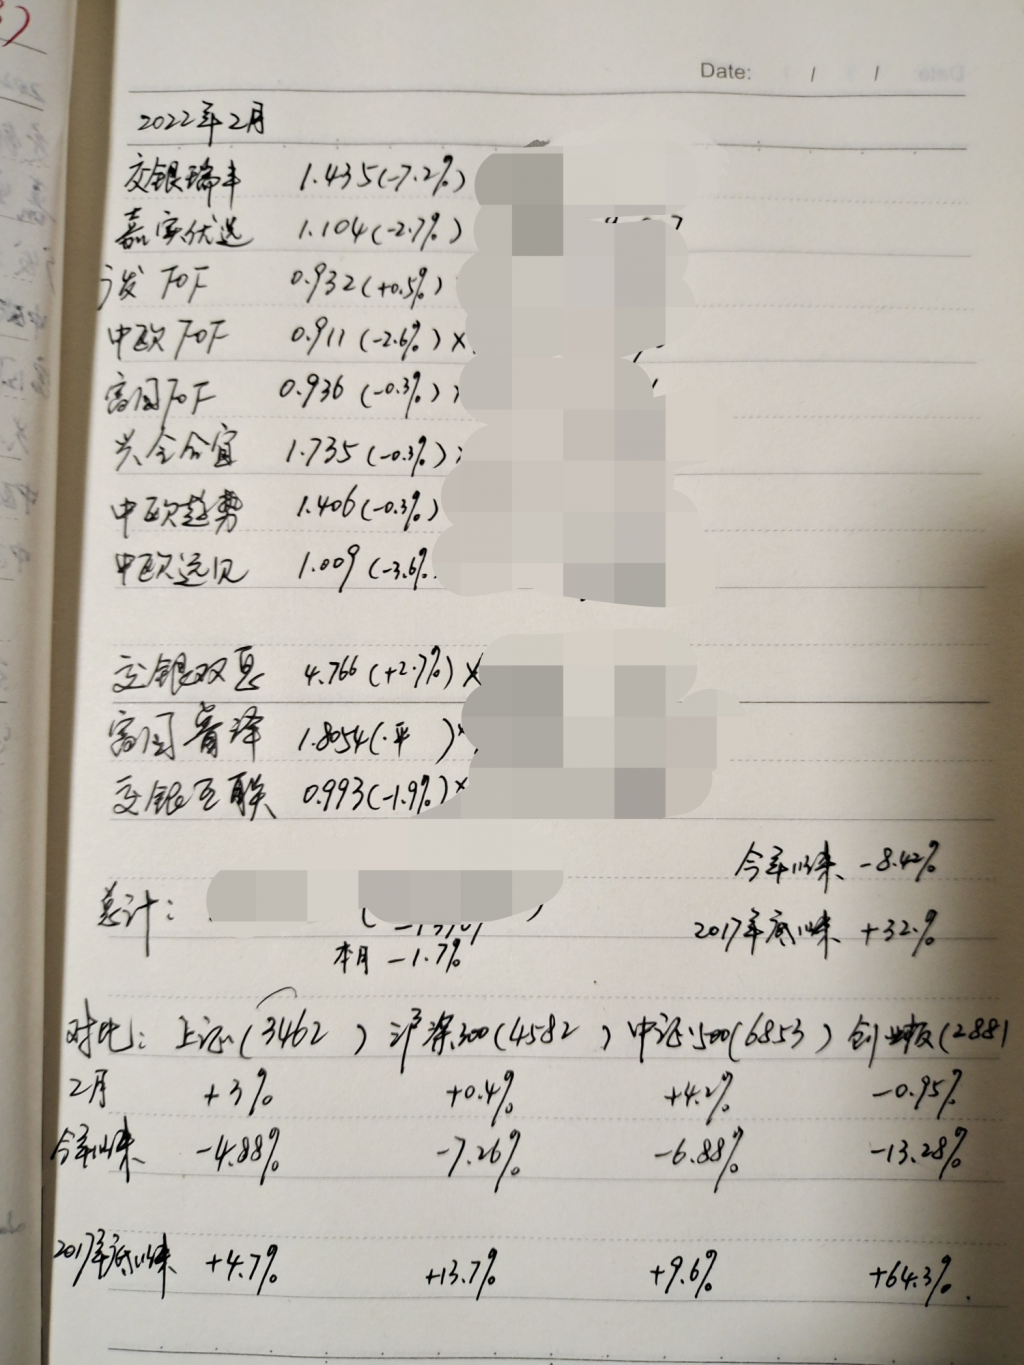 Date: / /
2022年2月
交银瑞丰 1.435(-7.2%)
嘉实优选 1.104(-2.7%)
广发FOF 0.932(+0.5%)
中欧FOF 0.911(-2.6%)×
富国FOF 0.936(-0.3%)
兴全合宜 1.735(-0.3%)
中欧趋势 1.406(-0.3%)
中欧远见 1.009(-3.6%
交银双息 4.766(+2.7%)×
富国睿泽 1.8054(平)×
交银互联 0.993(-1.9%)×
今年以来 -8.42%
总计: ( )
2017年底以来 +32%
本月 -1.7%
对比: 上证(3462) 沪深300(4582) 中证500(6853) 创业板(2881
2月 +3% +0.4% +4.2% -0.95%
今年以来 -4.88% -7.26% -6.88% -13.28%
2017年底以来 +4.7% +13.7% +9.6% +64.3%.